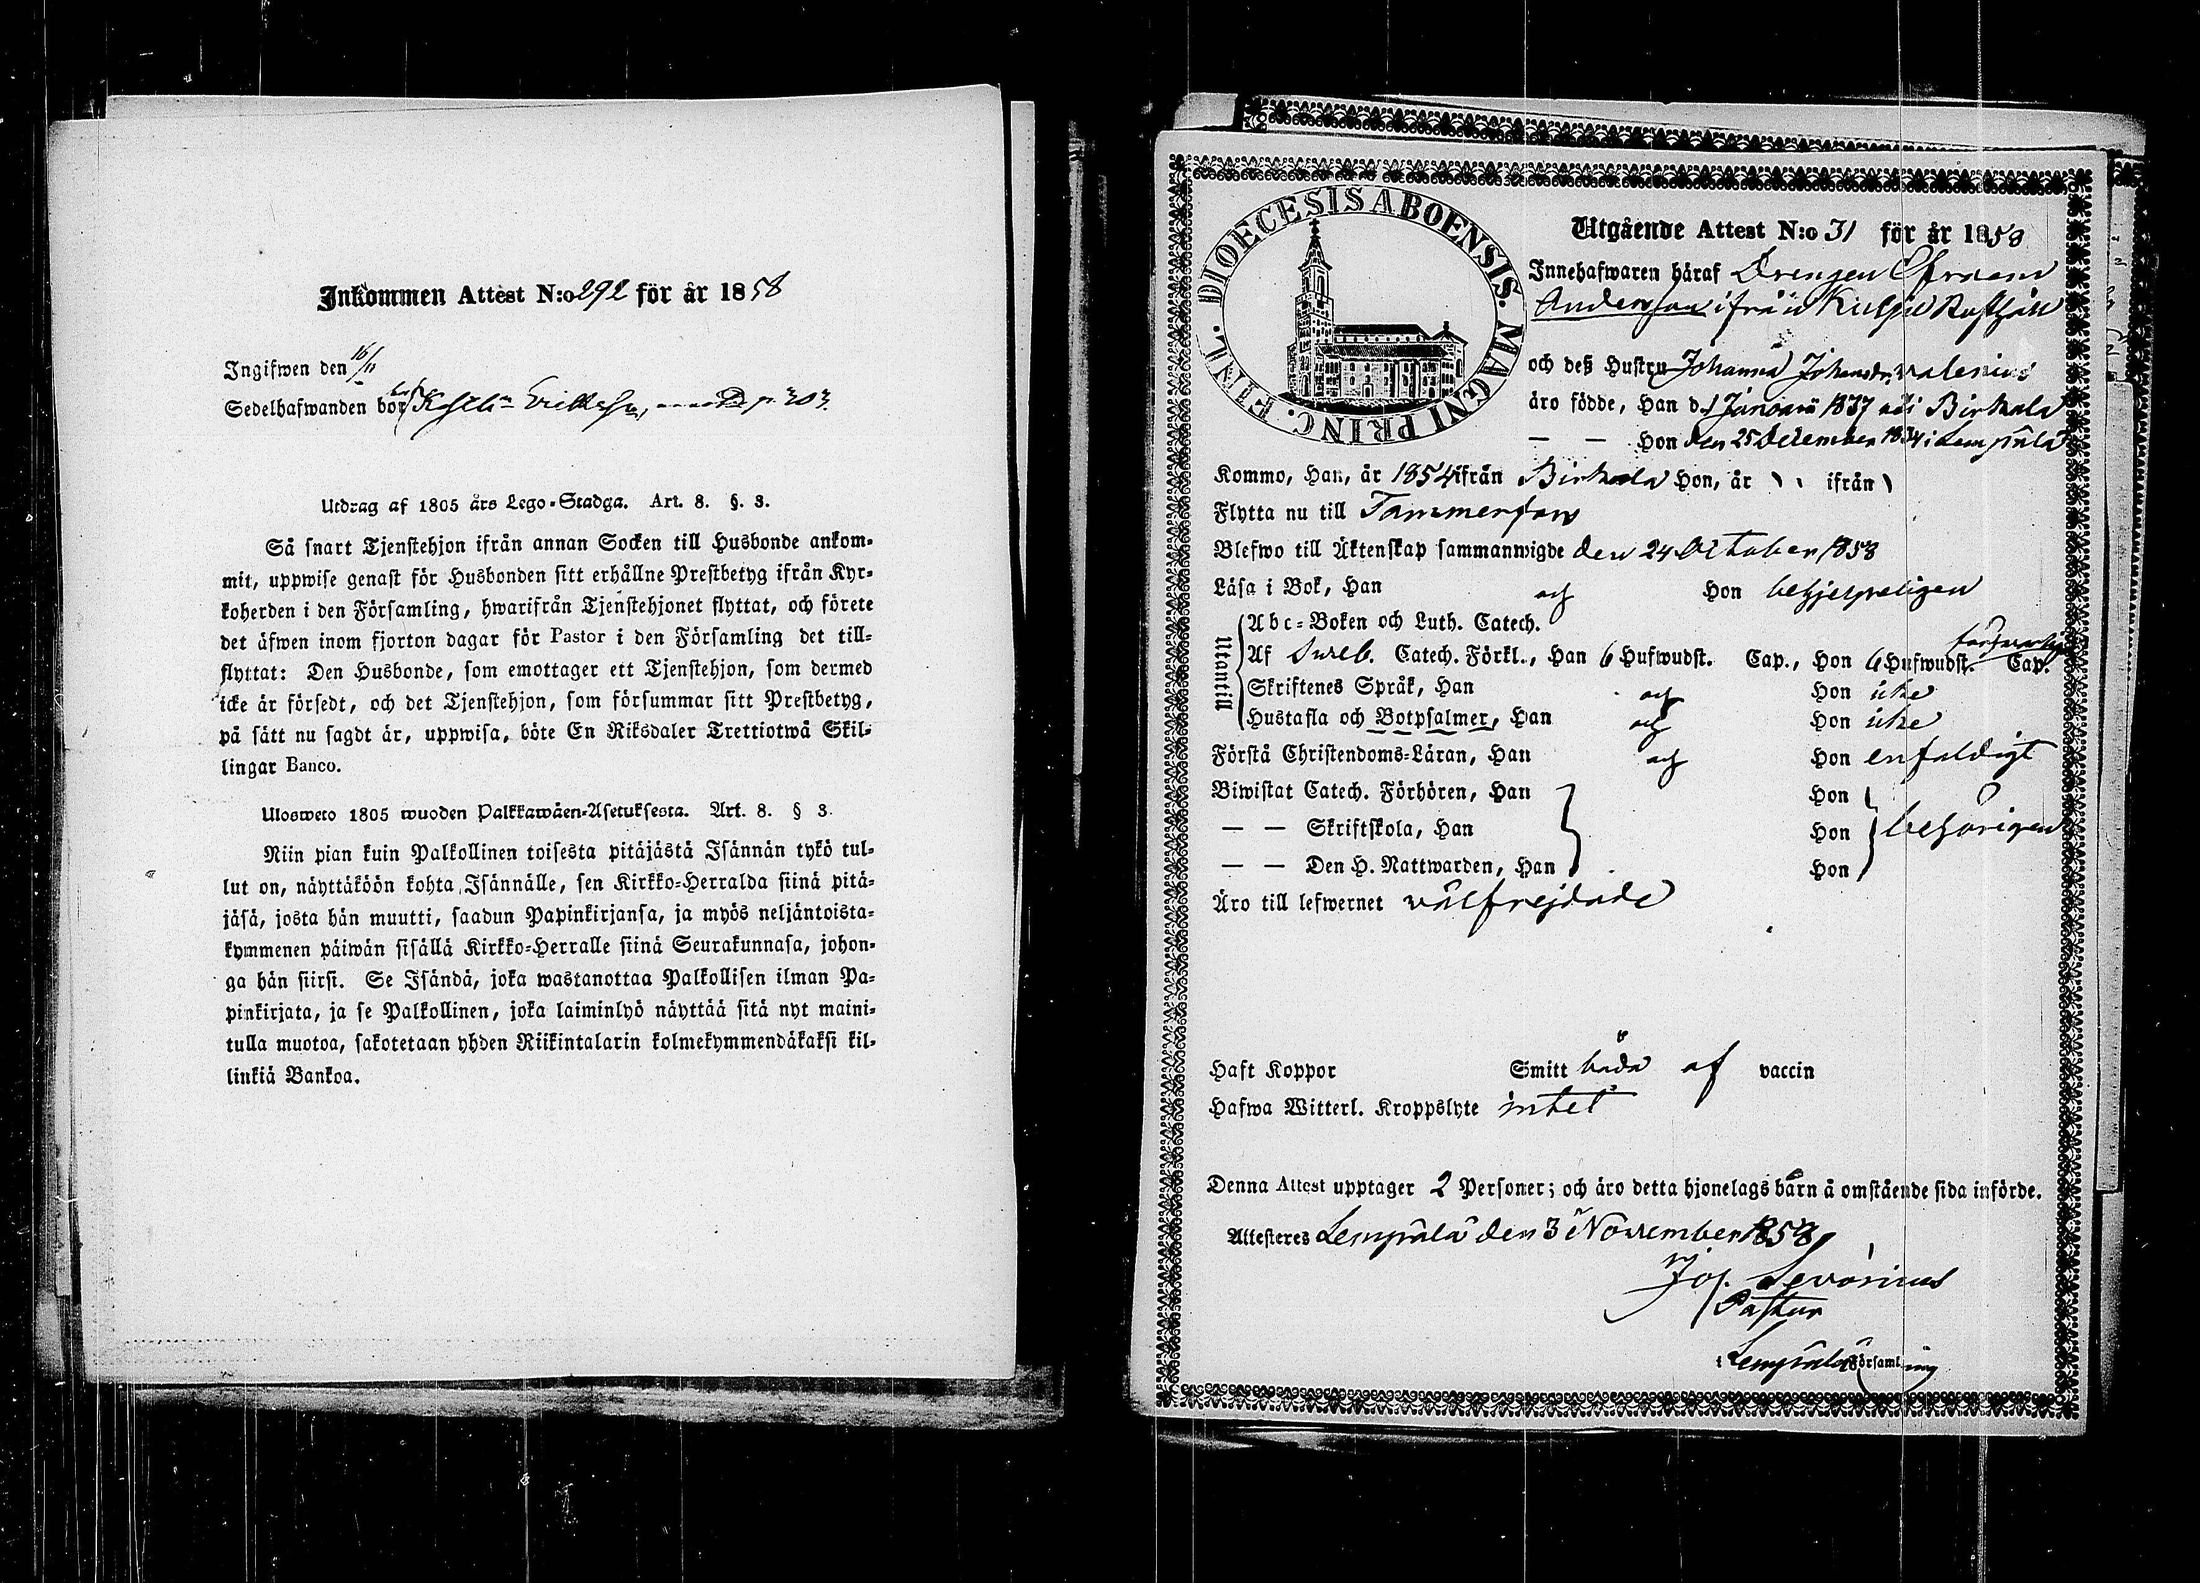 Inkommen Attest N:o 292 för år 1858
Ingifwen den 16/11
Sedelhafwanden bor
Utdrag af 1805 års Lego-Stadga. Art. 8. §. 3.
Så snart Tjenstehjon ifrån annan Socken till Husbonde ankom-
mit, uppwise genast för Husbonden sitt erhållne Prestbetyg ifrån Kyr-
koherden i den Församling, hwarifrån Tjenstehjonet flyttat, och förete
det äfwen inom fjorton dagar för Pastor i den Församling det till-
flyttat: Den Husbonde, som emottager ett Tjenstehjon, som dermed
icke är försedt, och det Tjenstehjon, som försummar sitt Prestbetyg,
på sätt nu sagdt är, uppwisa, böte En Riksdaler Trettiotwå Skil-
lingar Banco.
Ulosweto 1805 wuoden Palkkawäen-Asetuksesta. Art. 8. § 3.
Niin pian kuin Palkollinen toisesta pitäjästä Isännän tykö tul-
lut on, näyttäköön kohta Isännälle, sen Kirkko-Herralda siinä pitä-
jäsä, josta hän muutti, saadun Papinkirjansa, ja myös neljäntoista-
kymmenen päiwän sisällä Kirkko-Herralle siinä Seurakunnasa, johon-
ga hän siirsi. Se Isändä, joka wastanottaa Palkollisen ilman Pa-
pinkirjata, ja se Palkollinen, joka laiminlyö näyttää sitä nyt maini-
tulla muotoa, sakotetaan yhden Riikintalarin kolmekymmendäkaksi kil-
linkiä Bankoa.
DIOECESIS ABOENSIS. MAGNI PRINC. FINL.
Utgående Attest N:o 31 för år 1858
Innehafwaren häraf Drengen Efraim
Andersson ifrån Kulju Rusthåll
och deß Hustru Johanna Johansdr Valenius
äro födde, Han d. 1 Januarii 1837 uti Birkala
— — Hon den 25 December 1834 i Lempäla
Kommo, Han, år 1854 ifrån Birkala Hon, år ifrån
Flytta nu till Tammerfors
Blefwo till Äktenskap sammanwigde den 24 October 1858
Läsa i Bok, Han och Hon behjelpeligen
Utantill
Abc-Boken och Luth. Catech.
Af Sveb. Catech. Förkl., Han 6 Hufwudst. Cap., Hon 6 Hufwudst. Cap. försvarligt
Skriftenes Språk, Han och Hon icke
Hustafla och Botpsalmer, Han och Hon icke
Förstå Christendoms-Läran, Han och Hon enfaldigt
Biwistat Catech. Förhören, Han Hon
— — Skriftskola, Han Hon behörigen
— — Den H. Nattwarden, Han Hon
Äro till lefwernet välfrejdade
Haft Koppor Smitt båda af vaccin
Hafwa Witterl. Kroppslyte intet
Denna Attest upptager 2 Personer; och äro detta hjonelags barn å omstående sida införde.
Attesteres Lempäla den 3 November 1858
Jos. Sevonius
Pastor
i Lempäla Församling